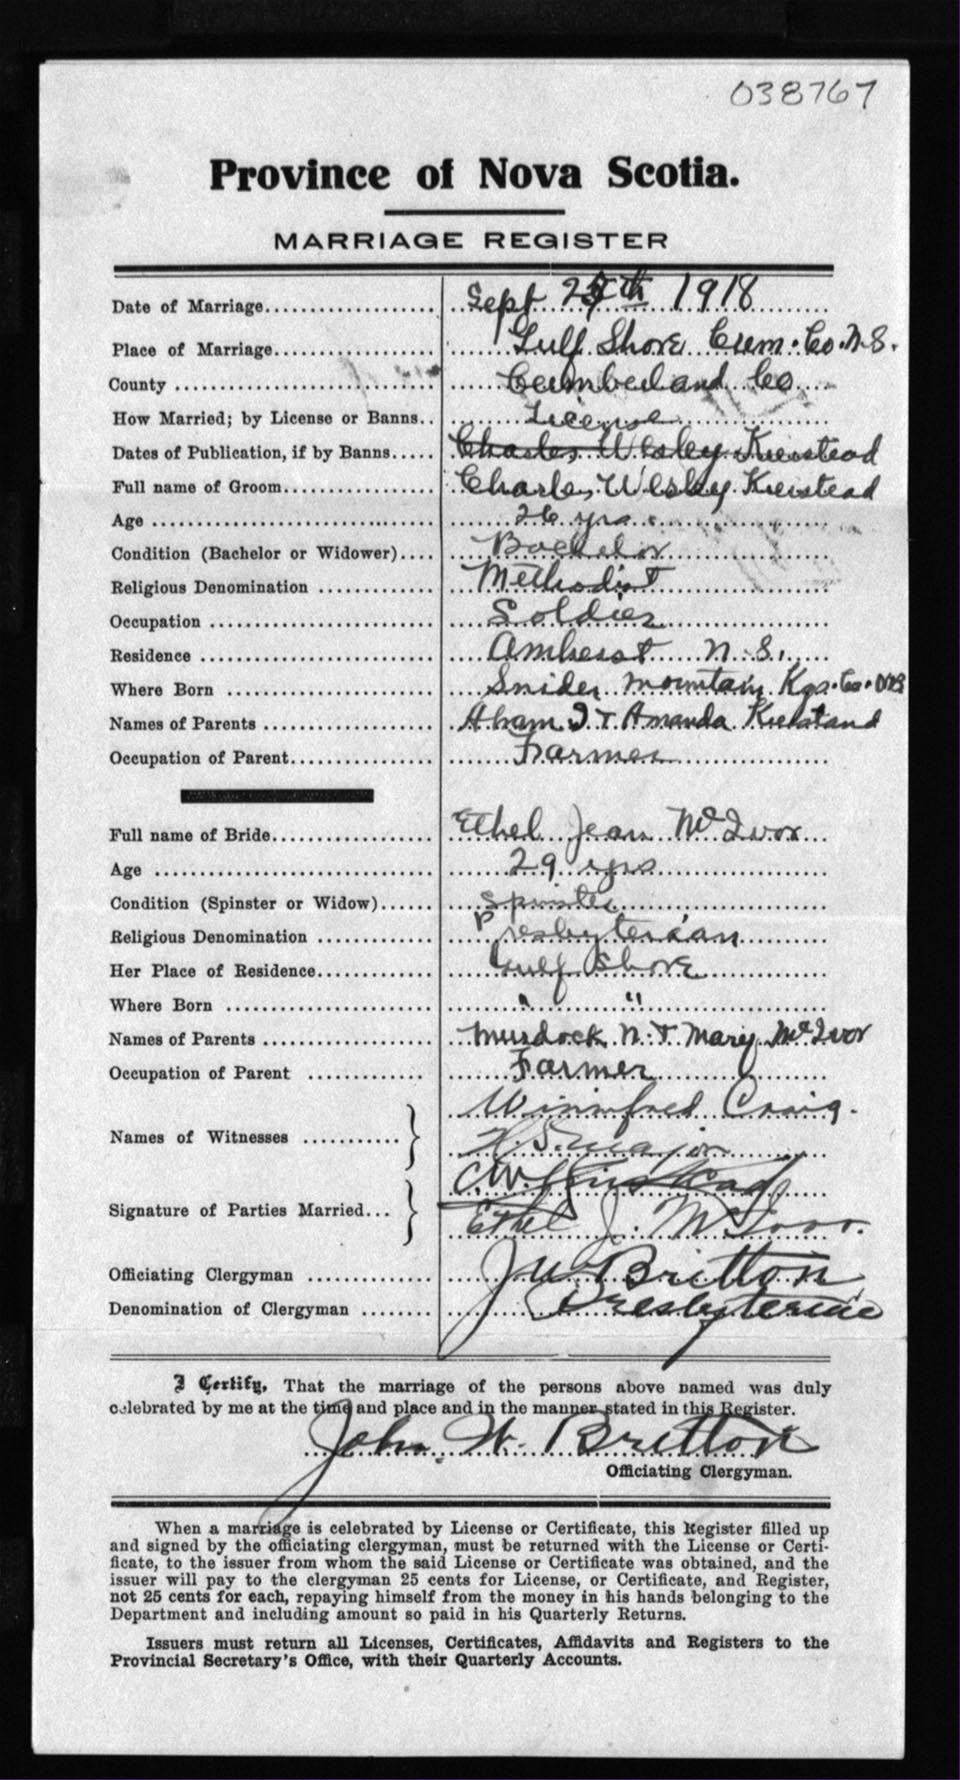 038767
Province of Nova Scotia.
MARRIAGE REGISTER
Date of Marriage Sept 25th 1918
Place of Marriage Gulf Shore Cum. Co. N.S.
County Cumberland Co
How Married; by License or Banns License
Dates of Publication, if by Banns Charles Wesley Kierstead
Full name of Groom Charles Wesley Kierstead
Age 26 yrs.
Condition (Bachelor or Widower) Bachelor
Religious Denomination Methodist
Occupation Soldier
Residence Amherst N.S.
Where Born Snider Mountain Kgs. Co. NB
Names of Parents & Amanda Kierstead
Occupation of Parent Farmer
Full name of Bride Ethel Jean McIvor
Age 29 yrs
Condition (Spinster or Widow) Spinster
Religious Denomination Presbyterian
Her Place of Residence Gulf Shore
Where Born " "
Names of Parents Murdock N. & Mary McIvor
Occupation of Parent Farmer
Winnifred Craig.
Names of Witnesses
H. S. Major
C.W. Kierstead
Signature of Parties Married
Ethel J. McIvor.
Officiating Clergyman J W Britton
Denomination of Clergyman
I Certify, That the marriage of the persons above named was duly
celebrated by me at the time and place and in the manner stated in this Register.
John W. Britton
Officiating Clergyman.
When a marriage is celebrated by License or Certificate, this Register filled up
and signed by the officiating clergyman, must be returned with the License or Certi-
ficate, to the issuer from whom the said License or Certificate was obtained, and the
issuer will pay to the clergyman 25 cents for License, or Certificate, and Register,
not 25 cents for each, repaying himself from the money in his hands belonging to the
Department and including amount so paid in his Quarterly Returns.
Issuers must return all Licenses, Certificates, Affidavits and Registers to the
Provincial Secretary's Office, with their Quarterly Accounts.